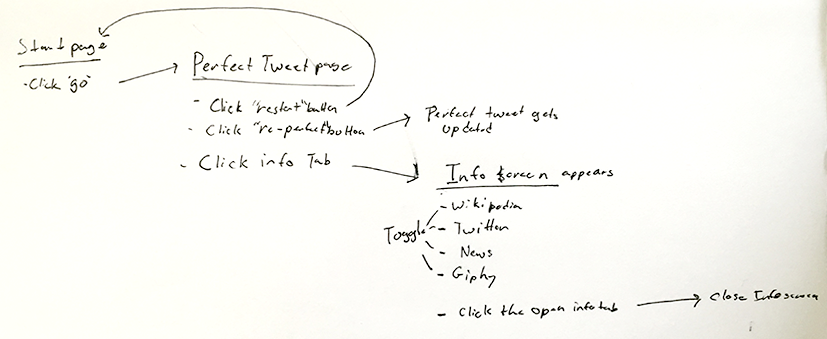 Start page
- Click "go"
Perfect Tweet page
- Click "restart" button
- Click "re-perfect" button
Perfect tweet gets
updated
- Click info Tab
Info Screen appears
Toggle
- Wikipedia
- Twitter
- News
- Giphy
- Click the open info tab
Close Infoscreen